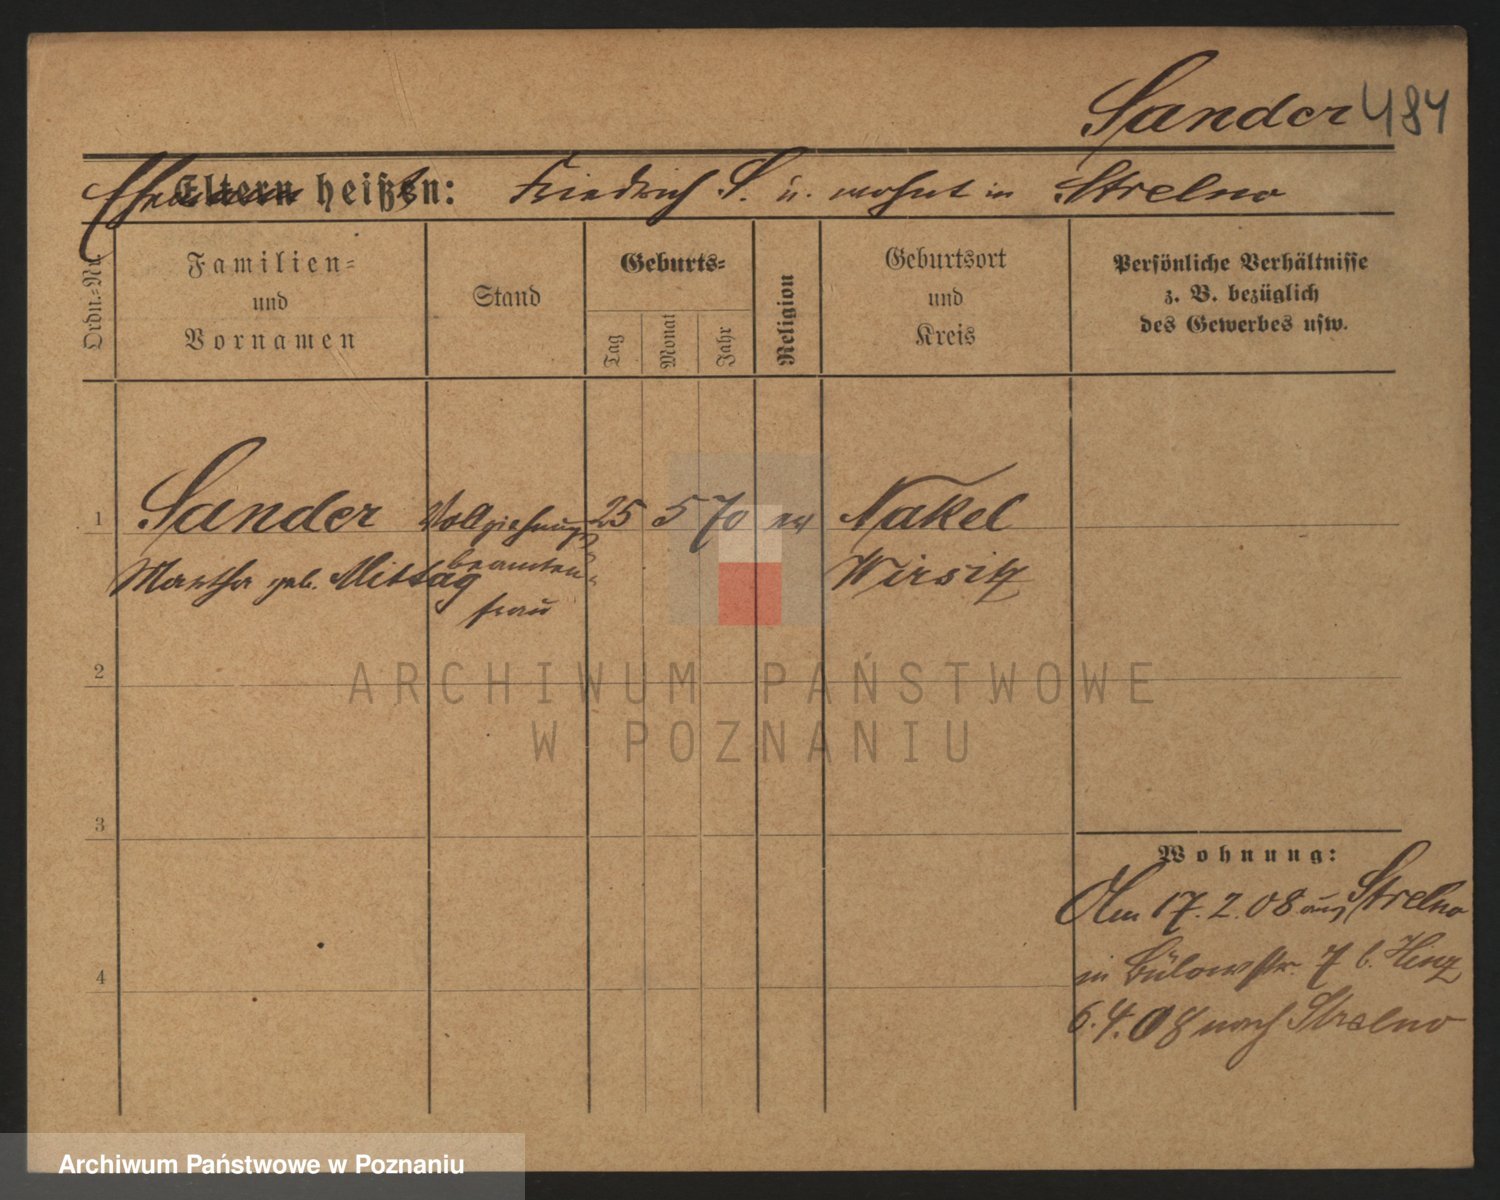 Sander 484
Ehemann heißt: Friedrich S. u. wohnt in Strelno
Eltern heißen:
Ordn.-Nr.
Familien-
und
Vornamen
Stand
Geburts-
Tag
Monat
Jahr
Religion
Geburtsort
und
Kreis
Persönliche Verhältnisse
z. B. bezüglich
des Gewerbes usw.
1 Sander Vollziehungs 25 5 70 ev Nakel
Martha geb. Mittag beamten- Wirsitz
frau
ARCHIWUM PAŃSTWOWE
W POZNANIU
2
3
Wohnung:
Am 17.2.08 aus Strelno
in Bülowstr. 7 b. Hinz
4
6.4.08 nach Strelno
Archiwum Państwowe w Poznaniu